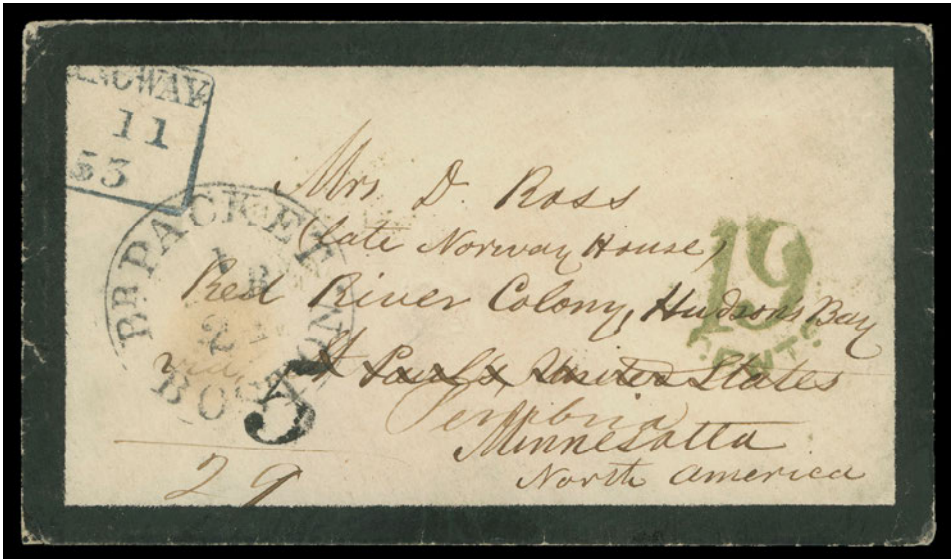 11
53
BR. PACKET
BOSTON
5
19
CENTS
Mrs. D. Ross
(late Norway House)
Red River Colony, Hudson's Bay
via St Paul's United States
Pembina
Minnesotta
North America
29